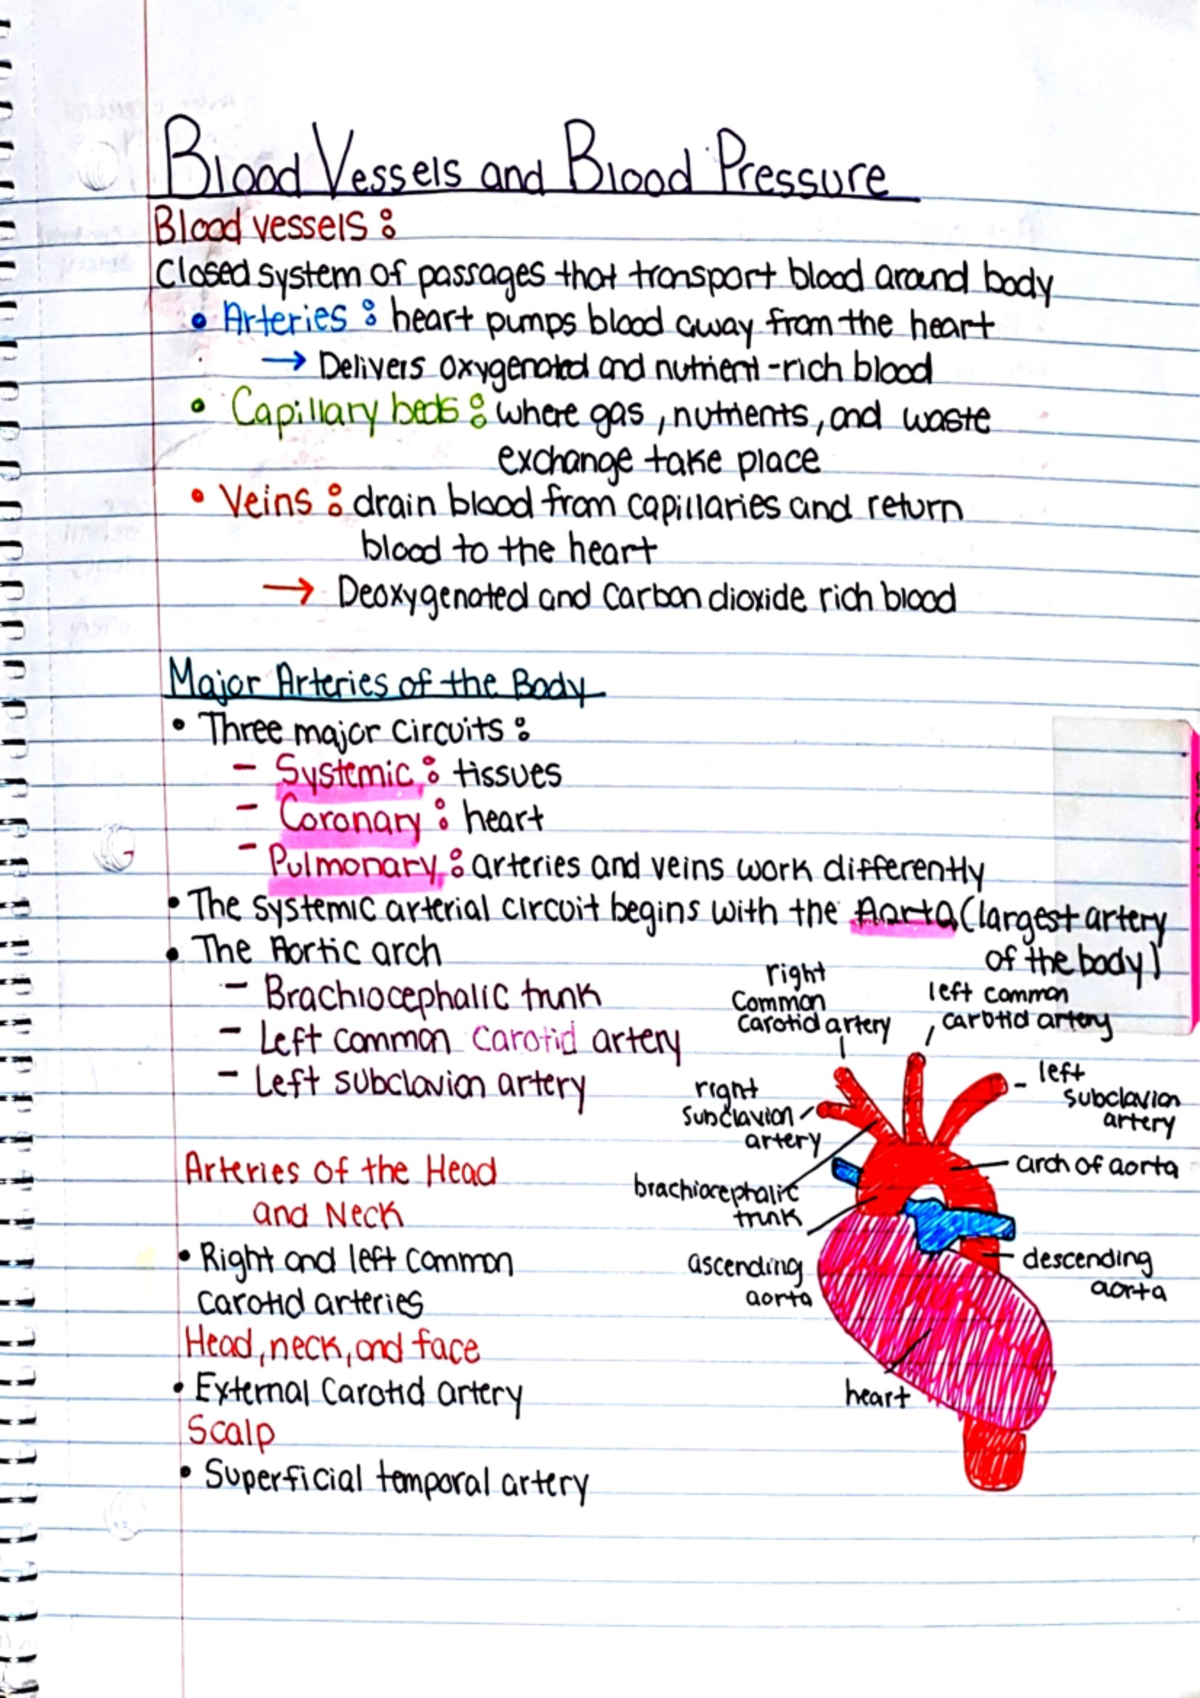 Blood Vessels and Blood Pressure
Blood vessels:
Closed system of passages that transport blood around body
• Arteries: heart pumps blood away from the heart
→ Delivers oxygenated and nutrient-rich blood
• Capillary beds: where gas, nutrients, and waste
exchange take place
• Veins: drain blood from capillaries and return
blood to the heart
→ Deoxygenated and Carbon dioxide rich blood
Major Arteries of the Body
• Three major circuits:
- Systemic: tissues
- Coronary: heart
- Pulmonary: arteries and veins work differently
• The systemic arterial circuit begins with the Aorta (largest artery
of the body)
• The Aortic arch
- Brachiocephalic trunk
- Left common carotid artery
- Left subclavian artery
right
Common
Carotid artery
left common
carotid artery
right
subclavian
artery
left
subclavian
artery
arch of aorta
brachiocephalic
trunk
ascending
aorta
descending
aorta
heart
Arteries of the Head
and Neck
• Right and left common
carotid arteries
Head, neck, and face
• External Carotid artery
Scalp
• Superficial temporal artery